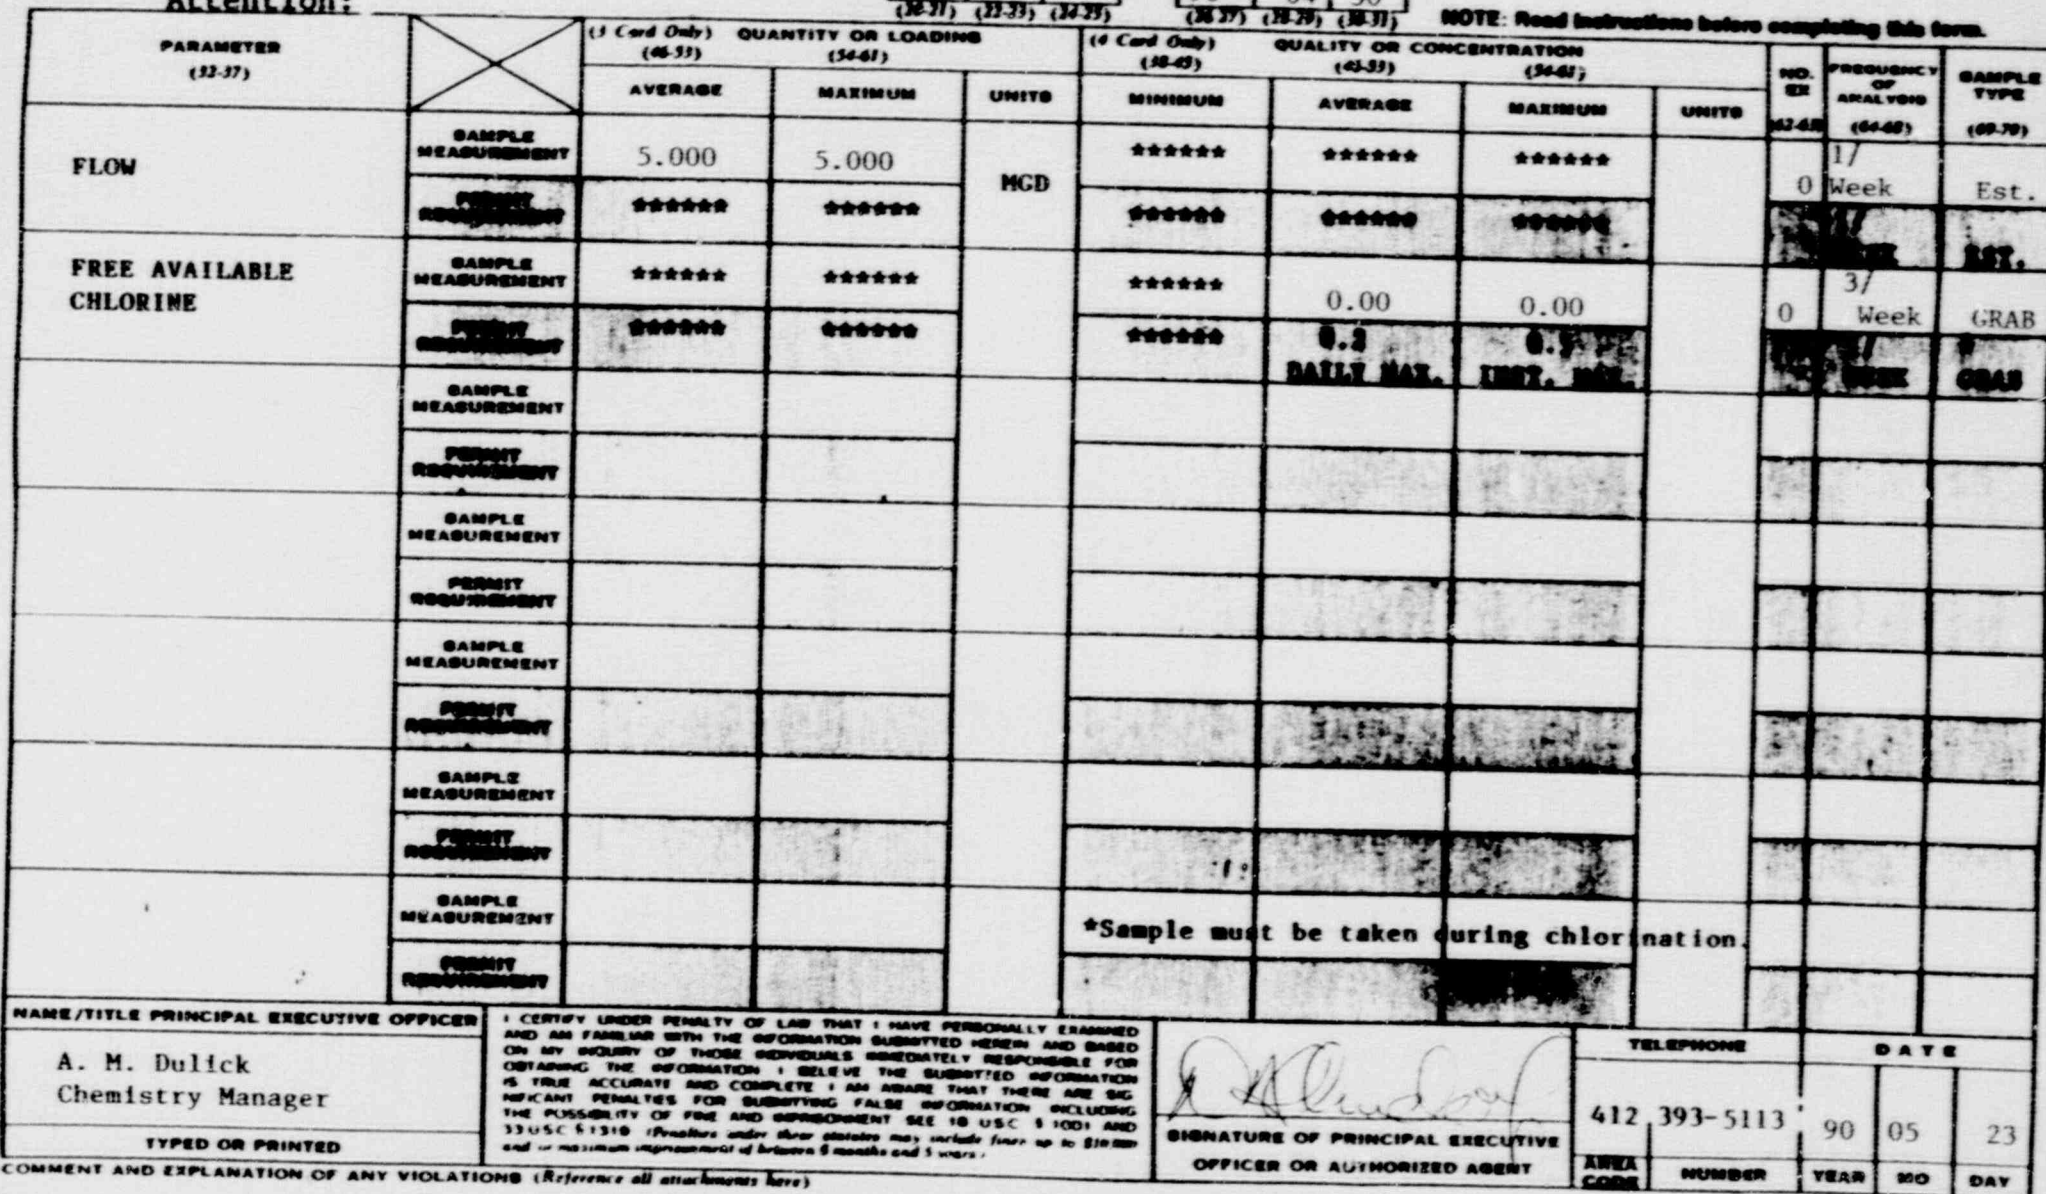 Attention:
(20-21) (22-23) (24-25) (26-27) (28-29) (30-31) NOTE: Read instructions before completing this form.
PARAMETER
(32-37)
(3 Card Only) QUANTITY OR LOADING
(46-53) (54-61)
(4 Card Only) QUALITY OR CONCENTRATION
(38-45) (46-53) (54-61)
NO.
EX
(62-63)
FREQUENCY
OF
ANALYSIS
(64-68)
SAMPLE
TYPE
(69-70)
AVERAGE MAXIMUM UNITS MINIMUM AVERAGE MAXIMUM UNITS
FLOW
SAMPLE
MEASUREMENT
5.000 5.000 MGD ****** ****** ****** 0 1/
Week Est.
PERMIT
REQUIREMENT
****** ****** ****** ****** ****** EST.
FREE AVAILABLE
CHLORINE
SAMPLE
MEASUREMENT
****** ****** ****** 0.00 0.00 0 3/
Week GRAB
PERMIT
REQUIREMENT
****** ****** ****** 0.2
DAILY MAX. INST. MAX. WEEK GRAB
SAMPLE
MEASUREMENT
PERMIT
REQUIREMENT
SAMPLE
MEASUREMENT
PERMIT
REQUIREMENT
SAMPLE
MEASUREMENT
PERMIT
REQUIREMENT
SAMPLE
MEASUREMENT
PERMIT
REQUIREMENT
SAMPLE
MEASUREMENT
*Sample must be taken during chlorination.
PERMIT
REQUIREMENT
NAME/TITLE PRINCIPAL EXECUTIVE OFFICER
A. M. Dulick
Chemistry Manager
TYPED OR PRINTED
I CERTIFY UNDER PENALTY OF LAW THAT I HAVE PERSONALLY EXAMINED
AND AM FAMILIAR WITH THE INFORMATION SUBMITTED HEREIN AND BASED
ON MY INQUIRY OF THOSE INDIVIDUALS IMMEDIATELY RESPONSIBLE FOR
OBTAINING THE INFORMATION I BELIEVE THE SUBMITTED INFORMATION
IS TRUE ACCURATE AND COMPLETE I AM AWARE THAT THERE ARE SIG
NIFICANT PENALTIES FOR SUBMITTING FALSE INFORMATION INCLUDING
THE POSSIBILITY OF FINE AND IMPRISONMENT SEE 18 USC § 1001 AND
33 USC § 1319 (Penalties under these statutes may include fines up to $10,000
and or maximum imprisonment of between 6 months and 5 years.)
SIGNATURE OF PRINCIPAL EXECUTIVE
OFFICER OR AUTHORIZED AGENT
TELEPHONE
412 393-5113
AREA
CODE NUMBER
DATE
90 05 23
YEAR MO DAY
COMMENT AND EXPLANATION OF ANY VIOLATIONS (Reference all attachments here)